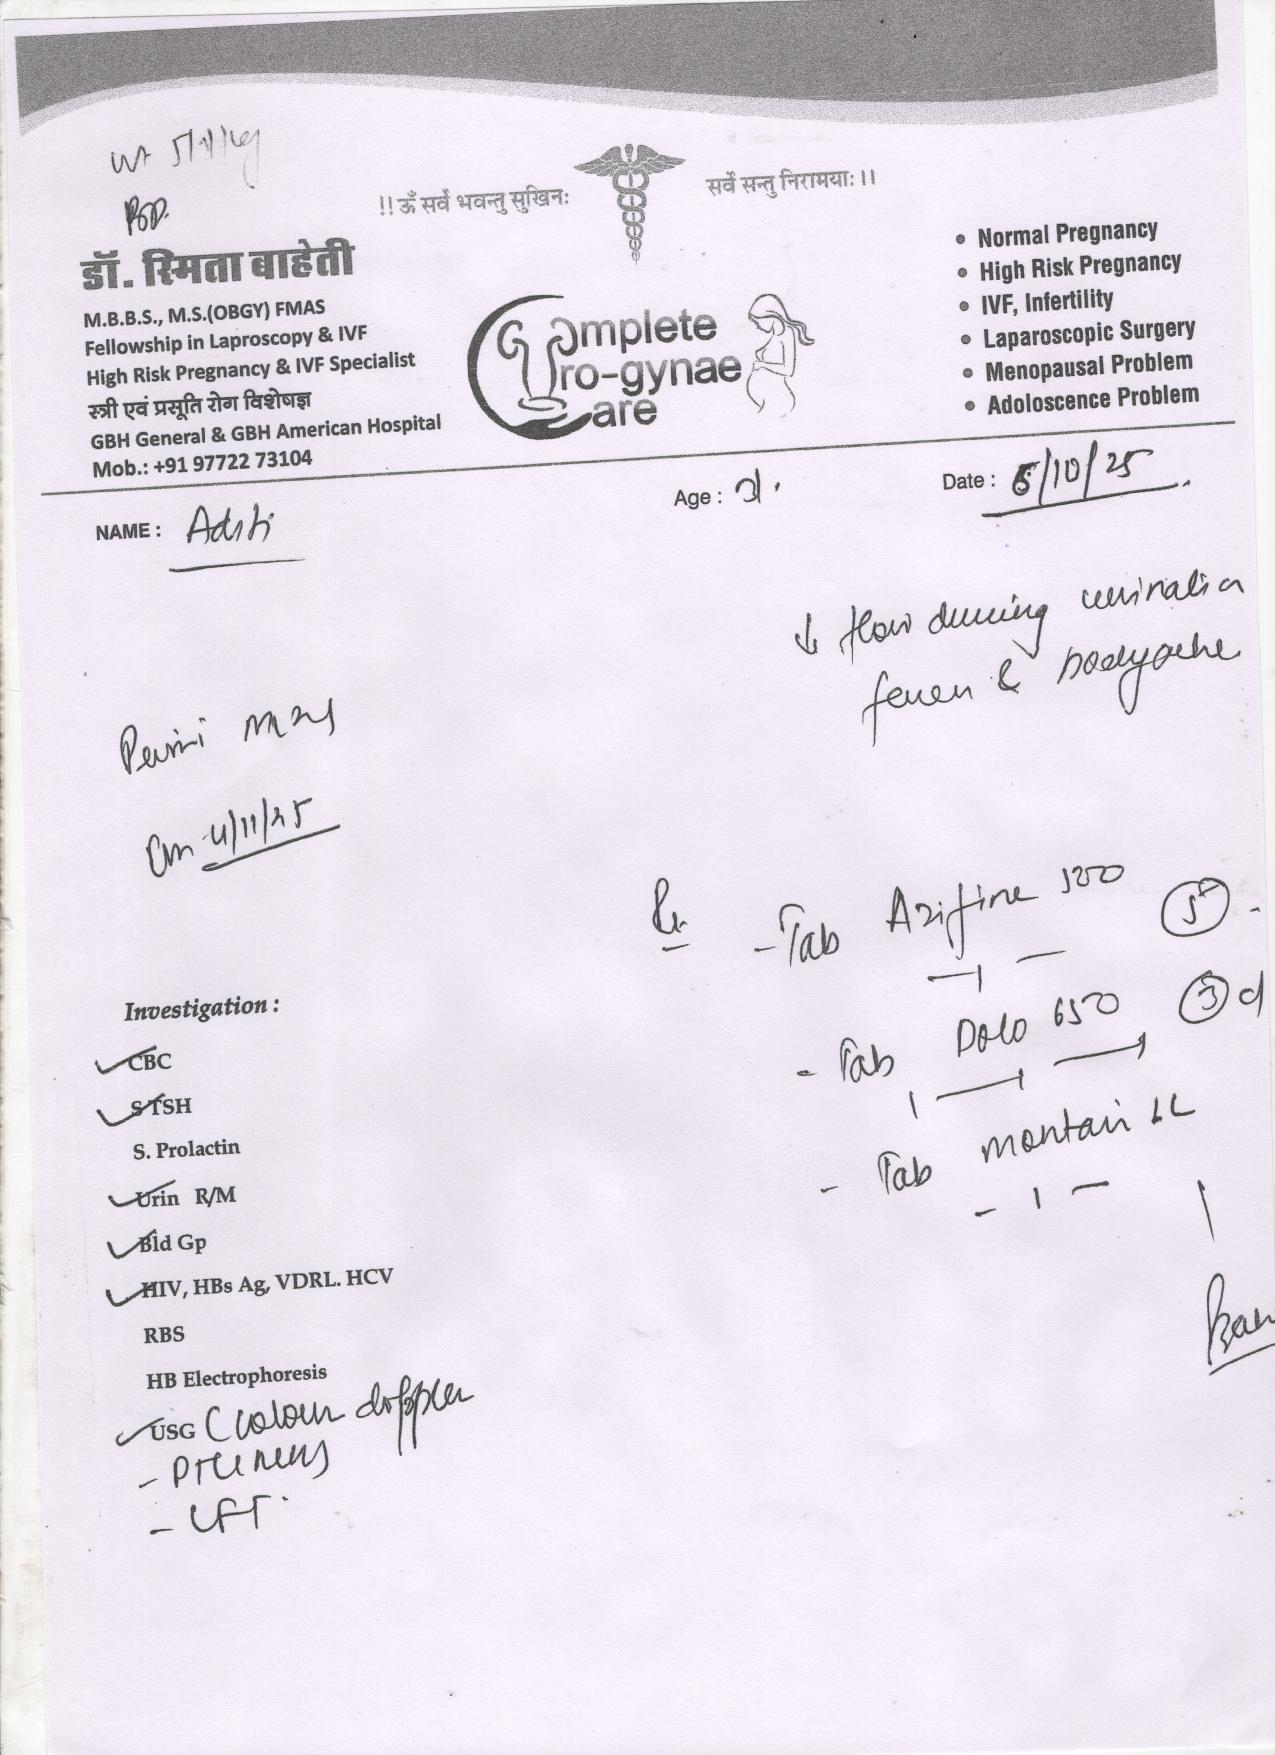 wt
!! ॐ सर्वे भवन्तु सुखिनः
सर्वे सन्तु निरामयाः ।।
डॉ. स्मिता बाहेती
M.B.B.S., M.S.(OBGY) FMAS
Fellowship in Laproscopy & IVF
High Risk Pregnancy & IVF Specialist
स्त्री एवं प्रसूति रोग विशेषज्ञ
GBH General & GBH American Hospital
Mob.: +91 97722 73104
Complete
Uro-gynae
Care
• Normal Pregnancy
• High Risk Pregnancy
• IVF, Infertility
• Laparoscopic Surgery
• Menopausal Problem
• Adoloscence Problem
NAME : Aditi
Age :
Date : 6/10/25
↓ flow during urination
fever & bodyache
on 4/11/25
Rx - Tab Azifine 500 5
- Tab Dolo 650 3 d
- Tab montair LC
Investigation :
CBC
S TSH
S. Prolactin
Urin R/M
Bld Gp
HIV, HBs Ag, VDRL. HCV
RBS
HB Electrophoresis
USG (colour doppler
- LFT.